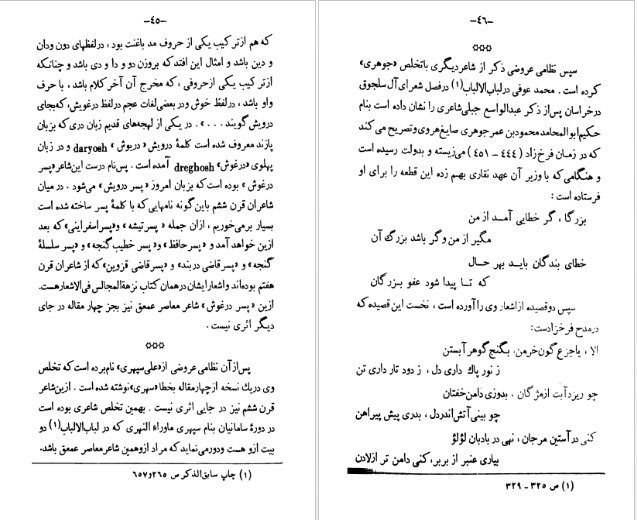 -٤٥-
که هم از ترکیب یکی از حروف مد باغنت بود ، در لفظهای دون ودان
و دین باشد و امثال این افتد که بروزن دو و دا و دی باشد و چنانکه
از ترکیب یکی از حروفی ، که مخرج آن آخر کلام باشد ، با حرف
واو باشد ، در لفظ خوش ودر بعضی لغات عجم در لفظ درغویش، که بجای
درویش گویند . . . » . در یکی از لهجه‌های قدیم زبان دری که بزبان
پازند معروف شده است کلمهٔ درویش « دریوش » daryosh و در زبان
پهلوی «درغوش» dreghosh آمده است . پس نام درست این شاعر «پسر
درغوش » بوده است که بزبان امروز «پسر درویش » می‌شود . در میان
شاعران قرن ششم باین گونه نامهایی که با کلمهٔ پسر ساخته شده است
بسیار برمی‌خوریم ، ازان جمله « پسر تیشه » و«پسر اسفراینی» که بعد
ازین خواهد آمد و «پسر حافظ » و«پسر خطیب گنجه » و «پسر سلسلهٔ
گنجه » و «پسر قاضی دربند» و «پسر قاضی قزوین» که از شاعران قرن
هفتم بوده‌اند و اشعار ایشان در همان کتاب نزهة المجالس فی الاشعار هست.
ازین «پسر درغوش» شاعر معاصر عمعق نیز بجز چهار مقاله در جای
دیگر اثری نیست .
***
پس از آن نظامی عروضی از «علی سپهری» نام برده است که تخلص
وی در یك نسخه از چهار مقاله بخطا «سهری» نوشته شده است . ازین شاعر
قرن ششم نیز در جایی اثری نیست . بهمین تخلص شاعری بوده است
در دورهٔ سامانیان بنام سپهری ماوراء النهری که در لباب الالباب(١) دو
بیت ازو هست ودور می‌نماید که مراد ازو همین شاعر معاصر عمعق باشد.
(١) چاپ سابق الذکر ص ٢٦٥ و ٦٥٧
-٤٦-
***
سپس نظامی عروضی ذکر از شاعر دیگری با تخلص «جوهری»
کرده است . محمد عوفی در لباب الالباب(١) در فصل شعرای آل سلجوق
در خراسان پس از ذکر عبدالواسع جبلی شاعری را نشان داده است بنام
حکیم ابوالمحامد محمود بن عمر جوهری صایغ هروی و تصریح می کند
که در زمان فرخ زاد (٤٤٤ - ٤٥١) می‌زیسته و بدولت رسیده است
و هنگامی که با وزیر آن عهد نقاری بهم زده این قطعه را برای او
فرستاده است :
بزرگا ، گر خطایی آمـد از من
مگیر از من و گر باشد بزرگ آن
خطای بندگان بایـد بهر حـال
که تـا پیدا شود عفو بـزرگان
سپس دو قصیده از اشعار وی را آورده است ، نخست این قصیده که
در مدح فرخ زادست :
الا ، یا جزع گون خرمن، بگنج گوهر آبستن
ز نور پاك داری دل ، ز دود تار داری تن
چو ریزد آبت از مژگان . بدوزی دامن خفتان
چو بینی آتش اندر دل ، بدری پیش پیراهن
کنی در آستین مرجان ، نهی در بادبان لؤلؤ
بیاری عنبر از بربر، کنی دامن تر از لادن
(١) ص ٣٢٥ - ٣٢٩